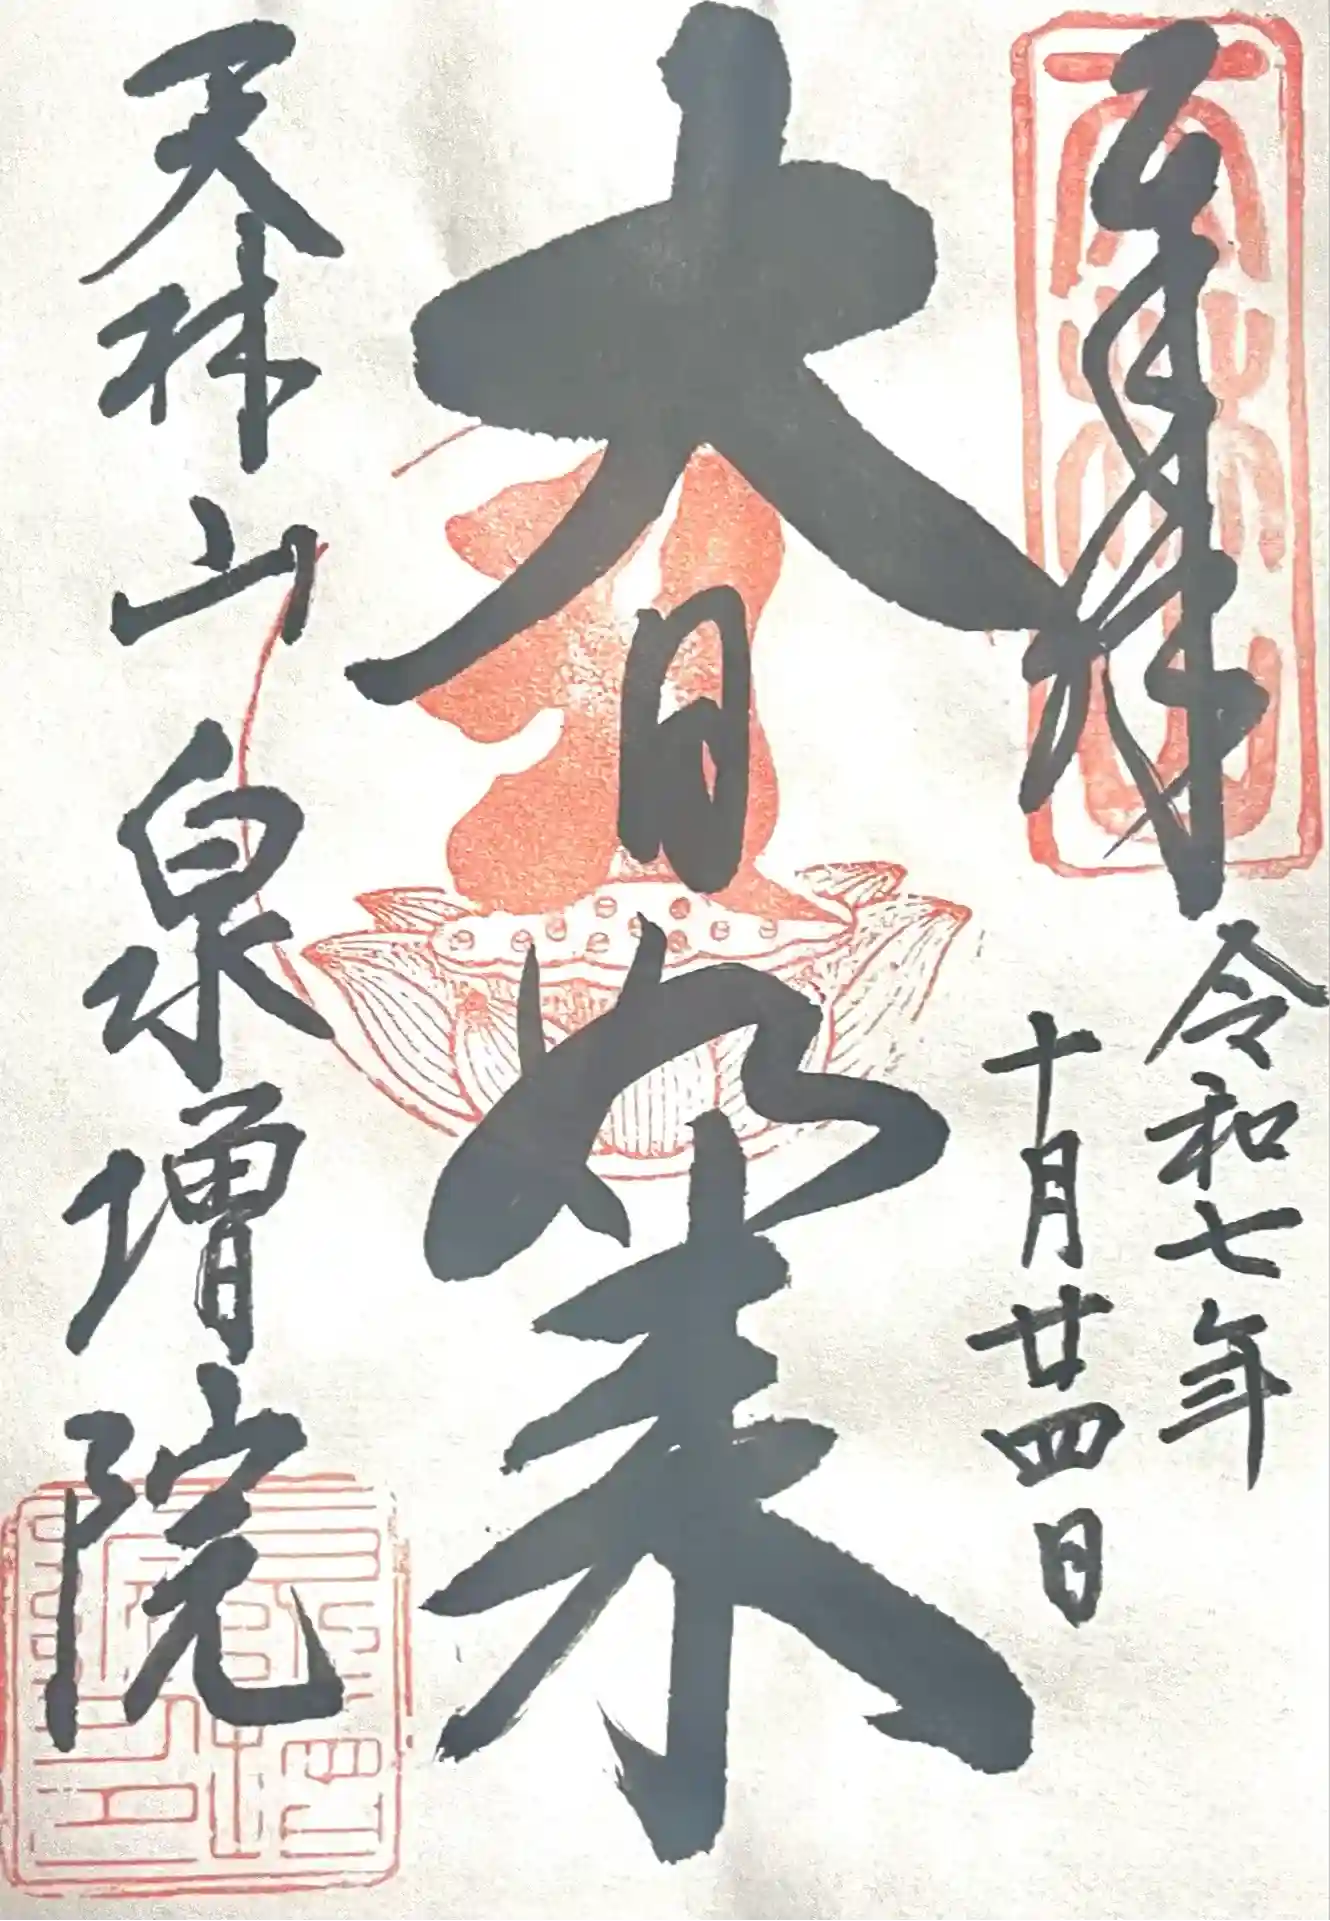 奉拝
天林山
令和七年
十月廿四日
大日如来
天林山泉増院